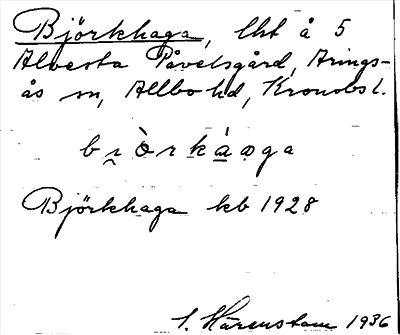 Björkhaga, lht å 5
Alvesta Påvelsgård, Arings-
ås sn, Allbo hd, Kronobs l.
bi̭òrká̱aga
Björkhaga kb 1928
S. Härenstam 1936